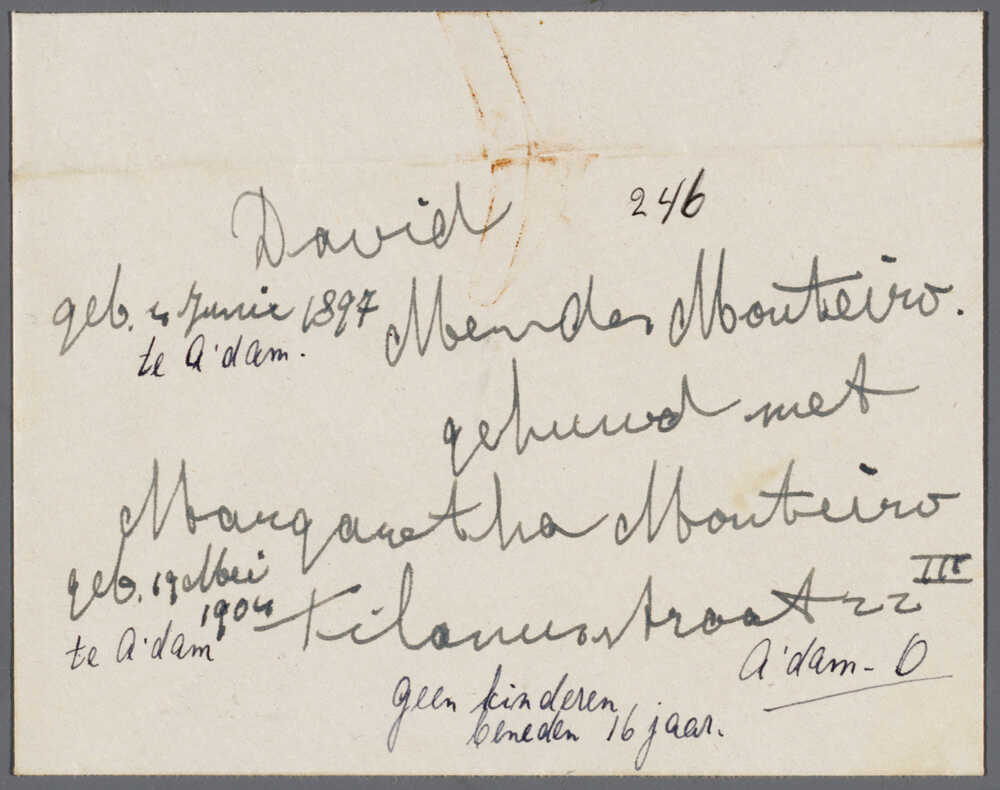 David 246
geb. 4 Junie 1897 Mendes Monteiro.
te A'dam.
gehuwd met
Margaretha Monteiro
geb. 19 Mei
1904 Tilanusstraat 22 III
te A'dam A'dam - O
geen kinderen
beneden 16 jaar.